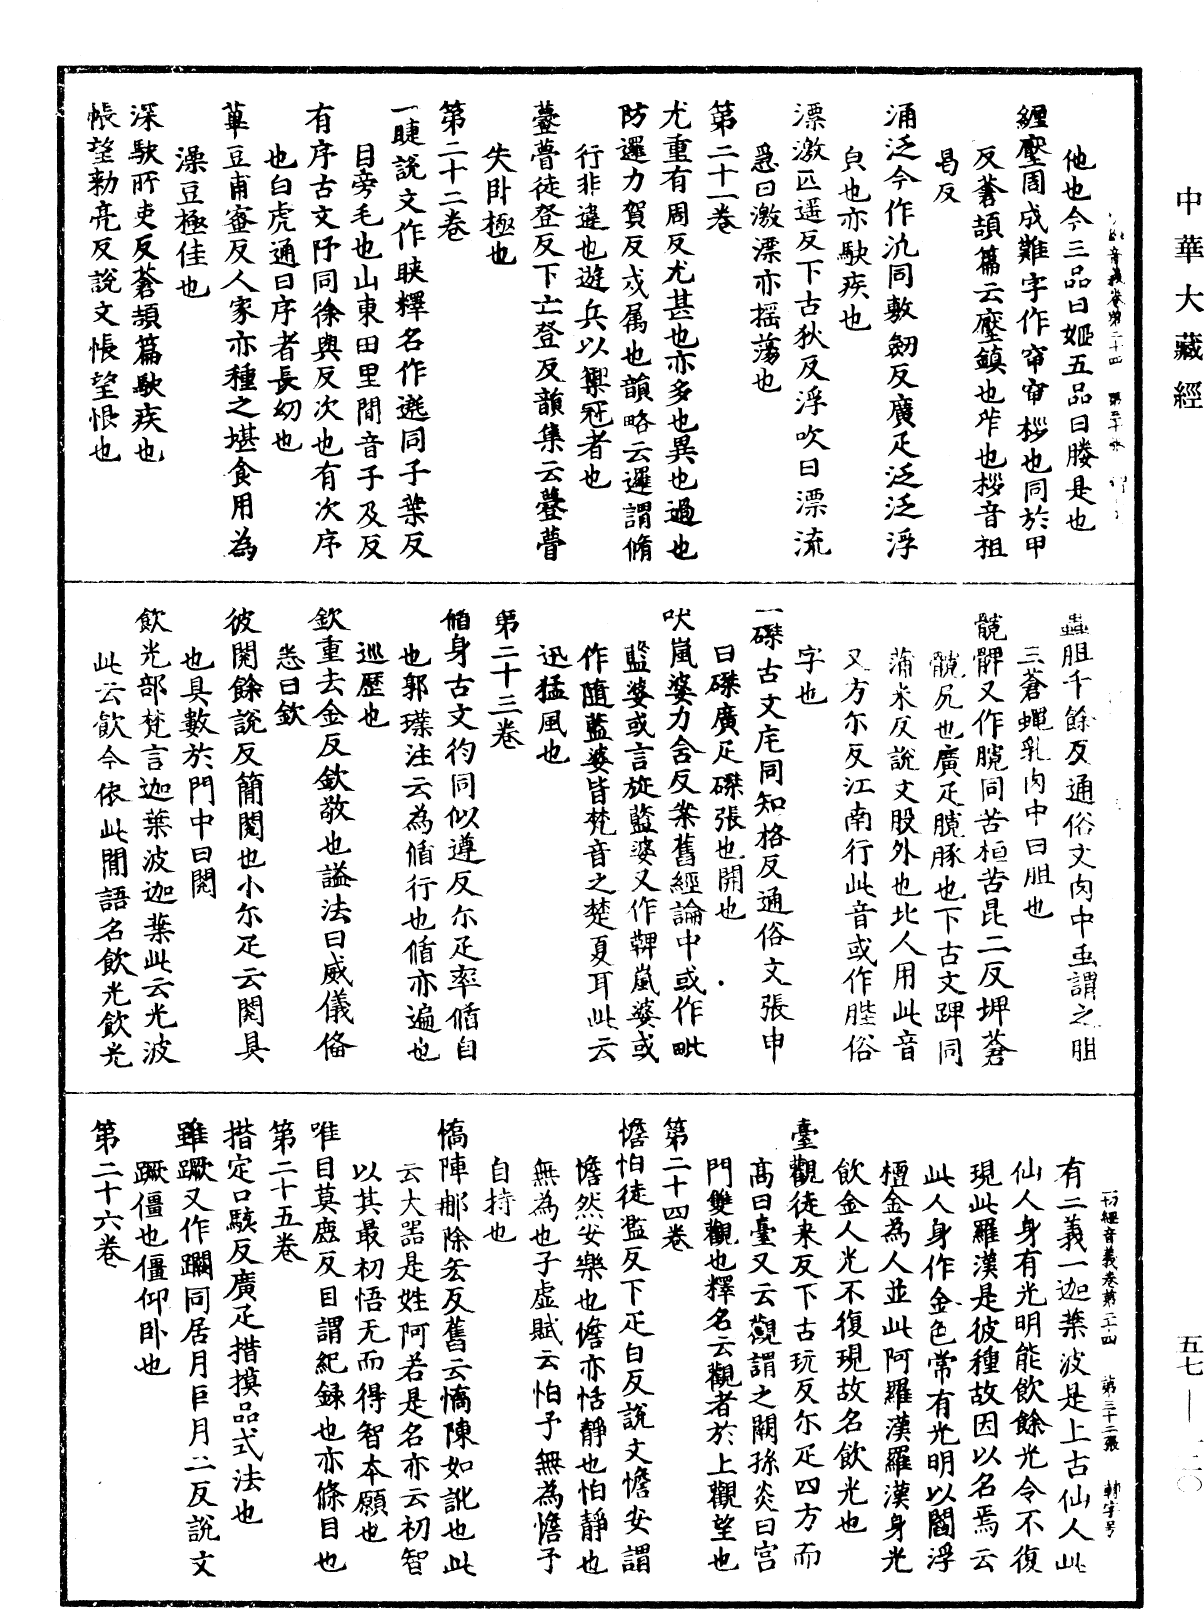 中華大藏經
他也今三品曰姬五品曰媵是也
纏壓周成難字作窄窄桚也同於甲
反蒼頡篇云壓鎮也笮也桚音祖
曷反
涌泛今作汎同敷劔反廣疋泛泛浮
皃也亦駛疾也
漂激匹遥反下古狄反浮吹曰漂流
急曰激漂亦搖蕩也
第二十一卷
尤重有周反尤甚也亦多也異也過也
防邏力賀反戍属也韻略云邏謂脩
行非違也遊兵以禦冦者也
䒢瞢徒登反下亡登反韻集云䒢瞢
失卧極也
第二十二卷
一睫說文作䀹釋名作𨗨同子葉反
目旁毛也山東田里間音子及反
有序古文阡同徐與反次也有次序
也白虎通曰序者長幼也
萆豆甫蜜反人家亦種之堪食用為
澡豆極佳也
深駛所吏反蒼頡篇駛疾也
悵望勑亮反說文悵望恨也
蟲胆千餘反通俗文肉中䖝謂之胆
三蒼蝿乳肉中曰胆也
髖髀又作臗同苦桓苦昆二反埤蒼
髖尻也廣疋臗豚也下古文踔同
蒲米反說文股外也北人用此音
又方尔反江南行此音或作䏶俗
字也
一磔古文庑同知格反通俗文張申
曰磔廣疋磔張也開也
吠嵐婆力含反案舊經論中或作毗
藍婆或言旋藍婆又作鞞嵐婆或
作隨藍婆皆梵音之楚夏耳此云
迅猛風也
第二十三卷
循身古文㣔同似遵反尓疋率循自
也郭璞注云為循行也循亦遍也
巡歷也
欽重去金反欽敬也謚法曰威儀俻
悉曰欽
彼閱餘說反簡閱也小尓疋云閱具
也具數於門中曰閱
飲光部梵言迦葉波迦葉此云光波
此云飲今依此間語名飲光飲光
有二義一迦葉波是上古仙人此
仙人身有光明能飲餘光令不復
現此羅漢是彼種故因以名焉云
此人身作金色常有光明以閻浮
檀金為人並此阿羅漢羅漢身光
飲金人光不復現故名飲光也
臺觀徒来反下古玩反尓疋四方而
髙曰臺又云觀謂之闕孫炎曰宫
門雙觀也釋名云觀者於上觀望也
第二十四卷
憺怕徒濫反下疋白反說文憺安謂
憺然安樂也憺亦恬靜也怕靜也
無為也子虚賦云怕予無為憺予
自持也
憍陣郍除叒反舊云憍陳如訛也此
云大器是姓阿若是名亦云初智
以其最初悟无而得智本願也
唯目莫鹿反目謂紀録也亦條目也
第二十五卷
揩定口駭反廣疋揩摸品式法也
雖蹶又作𨇮同居月巨月二反說文
蹶僵也僵仰卧也
第二十六卷
五七—一二〇